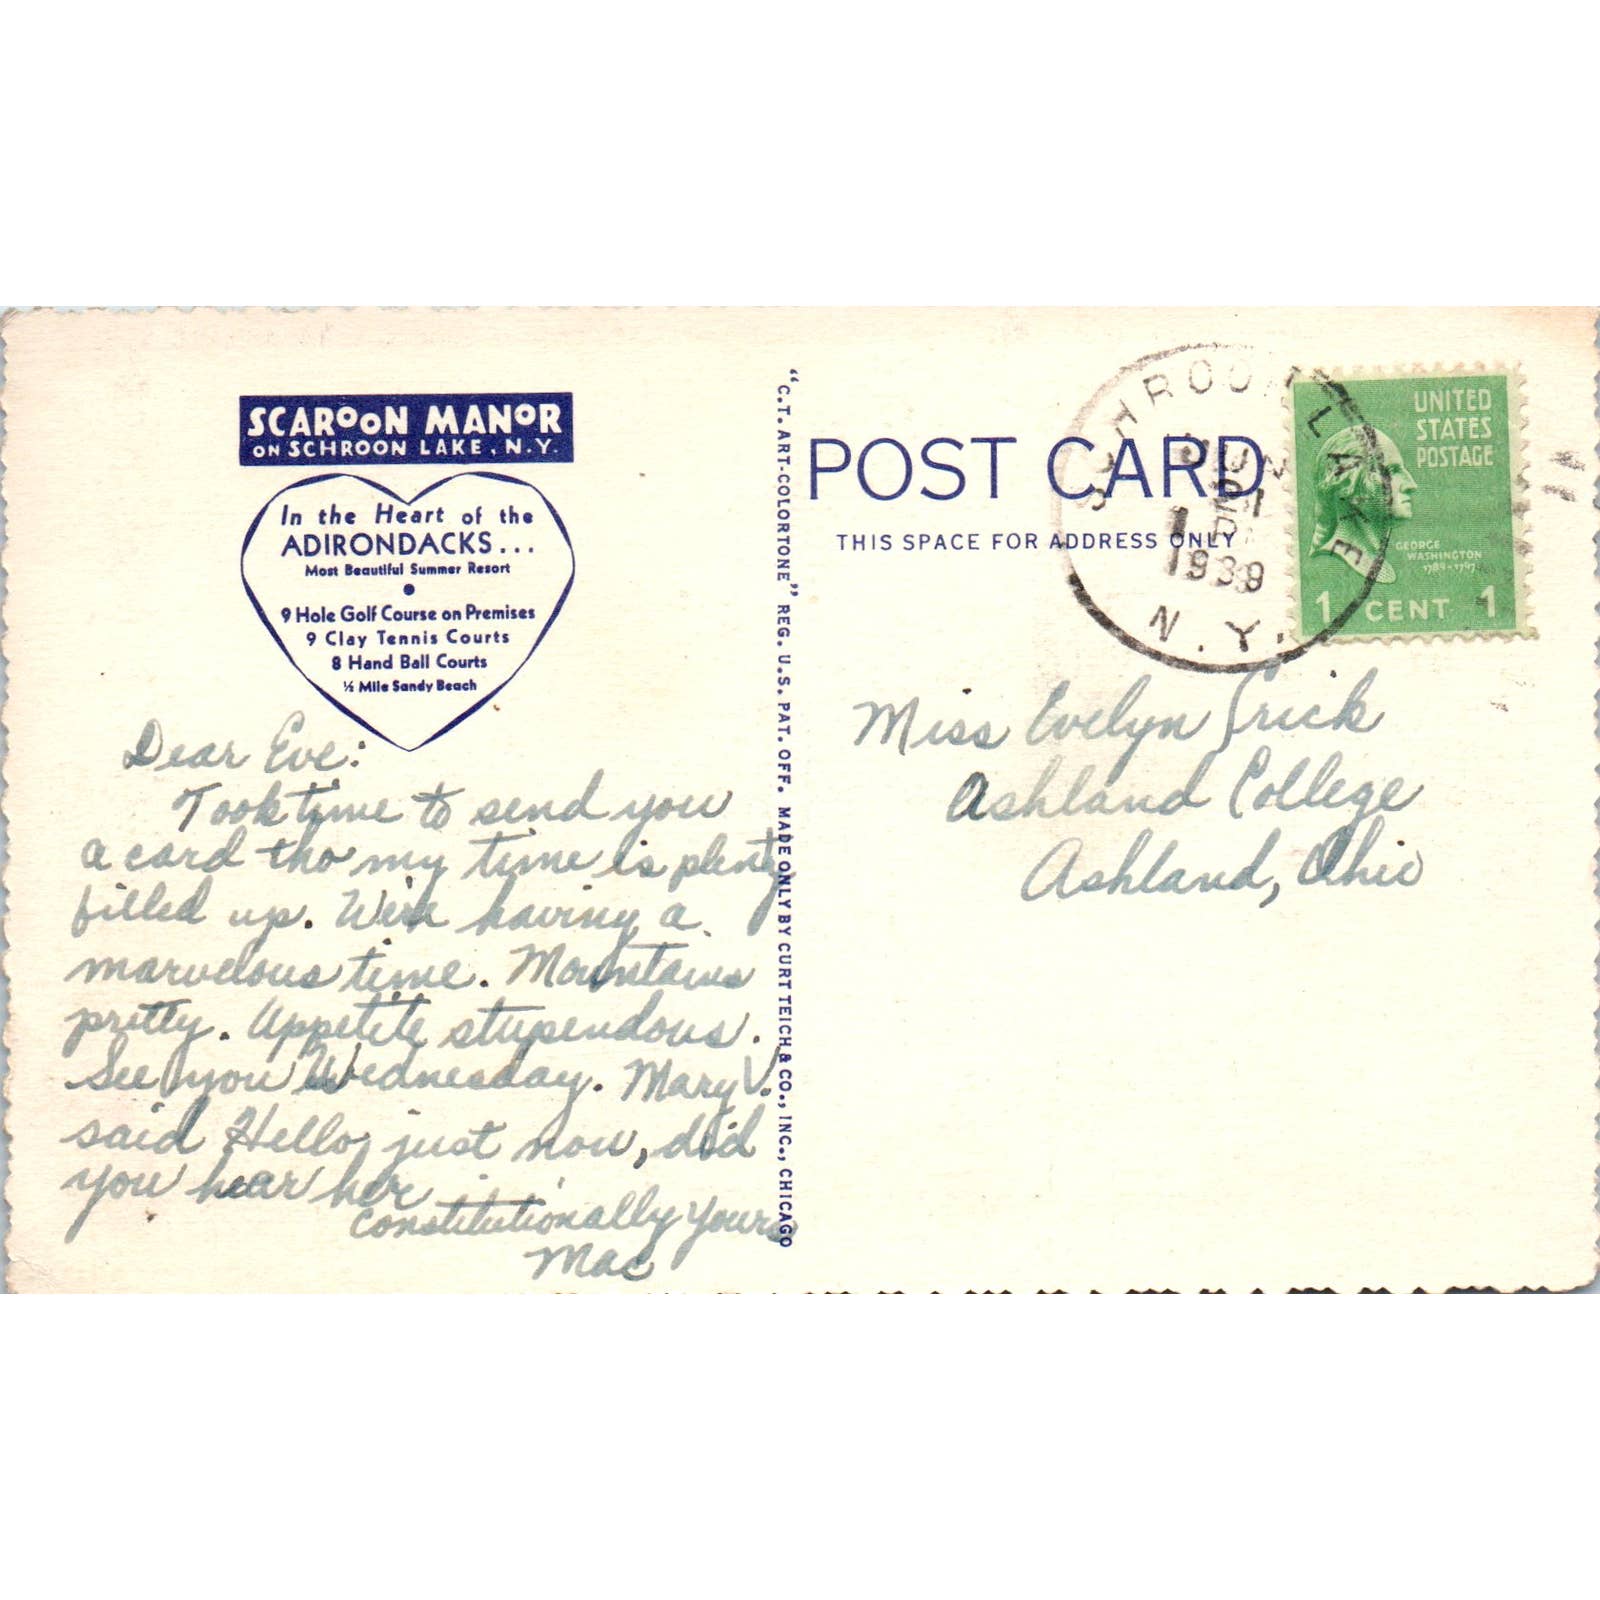 SCAROON MANOR
ON SCHROON LAKE, N.Y.
In the Heart of the
ADIRONDACKS...
Most Beautiful Summer Resort
9 Hole Golf Course on Premises
9 Clay Tennis Courts
8 Hand Ball Courts
½ Mile Sandy Beach
Dear Eve:
Took time to send you
a card tho my time is plenty
filled up. We're having a
marvelous time. Mountains
pretty. Appetite stupendous.
See you Wednesday. Mary V.
said Hello just now, did
you hear her
Constitutionally Yours
Mac
"C.T. ART-COLORTONE" REG. U.S. PAT. OFF. MADE ONLY BY CURT TEICH & CO., INC., CHICAGO
POST CARD
THIS SPACE FOR ADDRESS ONLY
SCHROON LAKE
JUN
21
PM
1939
N.Y.
UNITED
STATES
POSTAGE
GEORGE
WASHINGTON
1789-1797
1 CENT 1
Miss Evelyn
Ashland College
Ashland, Ohio